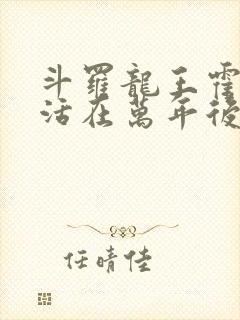 斗羅龍王霍
活在萬年後
任晴佳